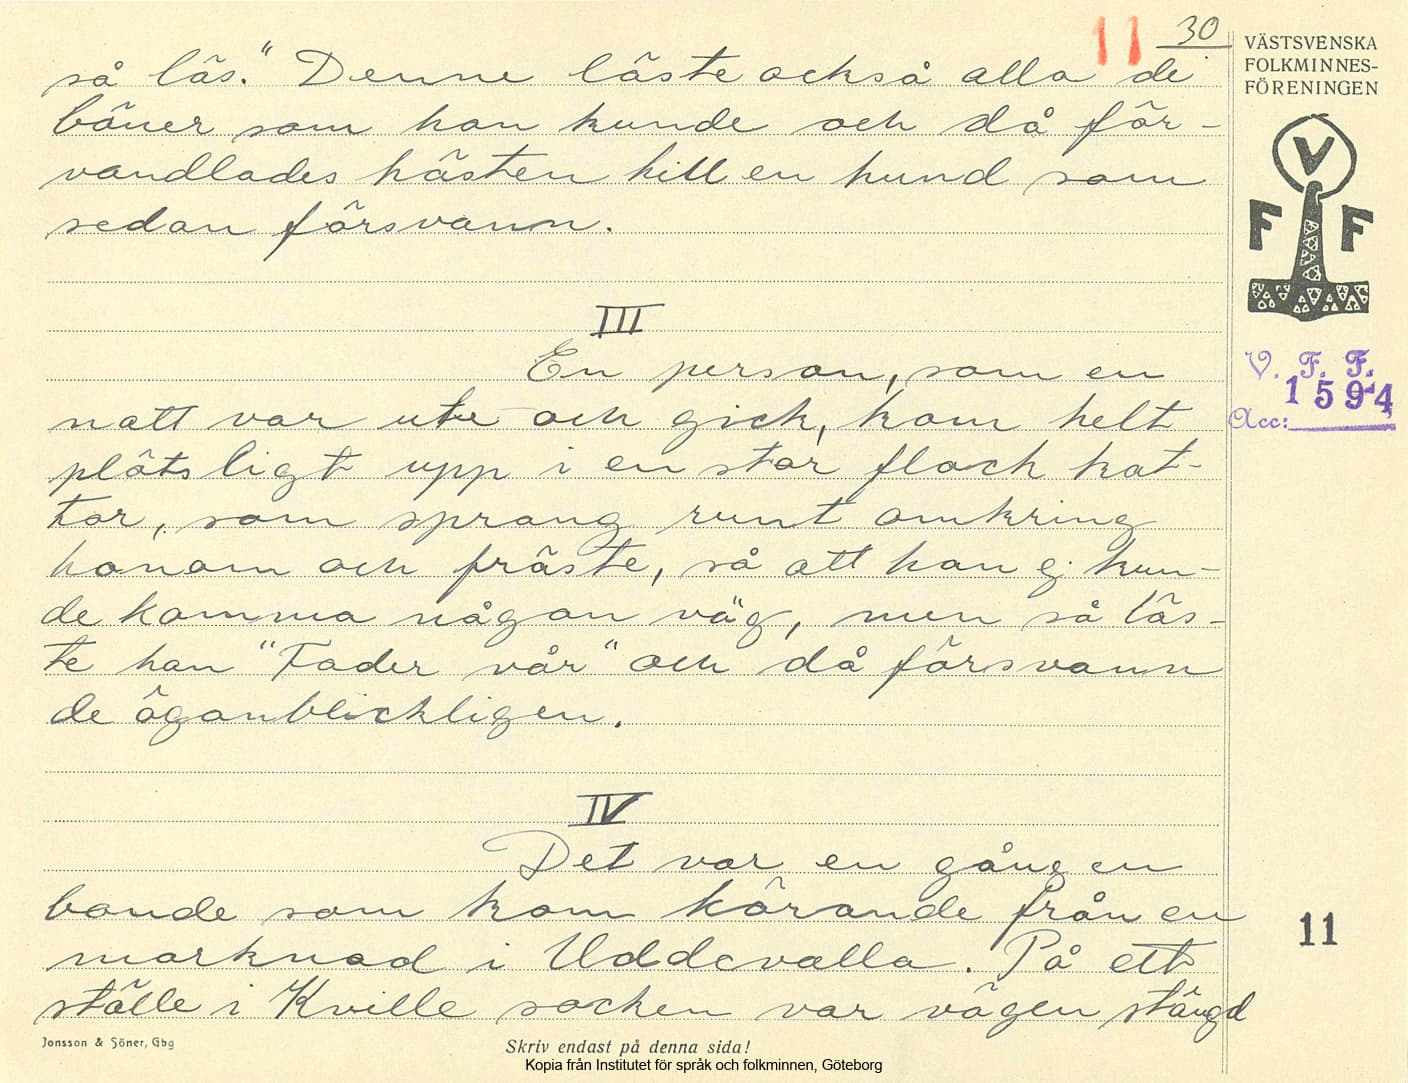 11 30
VÄSTSVENSKA
FOLKMINNES-
FÖRENINGEN
V
F F
V. F. F.
1594
Acc:
så läs." Denne läste också alla de
böner som han kunde och då för-
vandlades hästen till en hund som
sedan försvann.
III
En person, som en
natt var ute och gick, kom helt
plötsligt upp i en stor flock kat-
tor, som sprang runt omkring
honom och fräste, så att han ej kun-
de komma någon väg, men så läs-
te han "Fader vår" och då försvann
de ögonblickligen.
IV
Det var en gång en
bonde som kom körande från en
marknad i Uddevalla. På ett
ställe i Kville socken var vägen stängd
11
Jonsson & Söner, Gbg
Skriv endast på denna sida!
Kopia från Institutet för språk och folkminnen, Göteborg